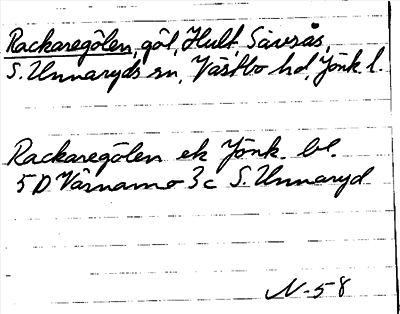 Rackaregölen, göl, Hult, Sävsås,
S. Unnaryds sn, Västbo hd, Jönk l.
Rackaregölen ek Jönk. bl.
5D Värnamo 3c S. Unnaryd
N-58